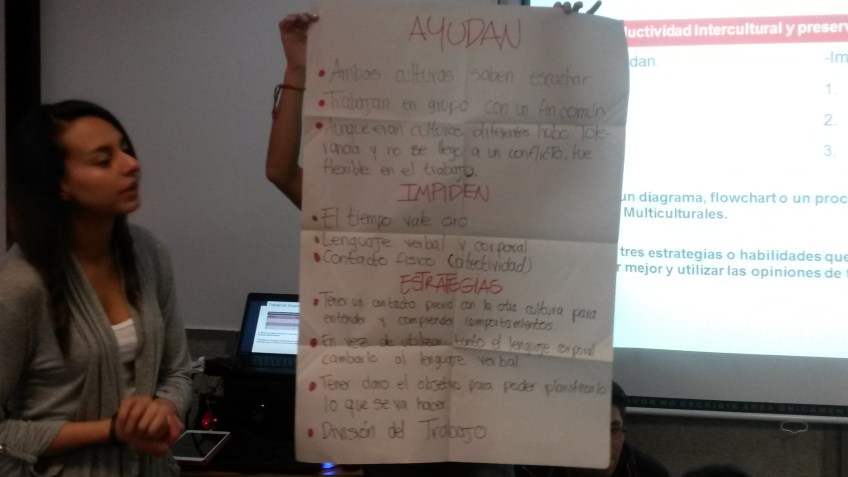 AYUDAN
• Ambas culturas saben escuchar
• Trabajan en grupo con un fin común
• Aunque eran culturas diferentes hubo Tole-
rancia y no se llego a un conflicto, fue
flexible en el trabajo.
IMPIDEN
• El tiempo vale oro
• Lenguaje verbal y corporal
• Contacto fisico (afectividad)
ESTRATEGIAS
• Tener un contacto previo con la otra cultura para
entender y comprender comportamientos.
• En vez de utilizar tanto el lenguaje corporal
cambiarlo al lenguaje verbal.
• Tener claro el objetivo para poder planificar lo
lo que se va hacer
• División del Trabajo
Intercultural y preserv
dan.
-Im
1.
2.
3.
un diagrama, flowchart o un proc
Multiculturales.
tres estrategias o habilidades que
r mejor y utilizar las opiniones de
FAVOR NO ESCRIBIR AREA UNICAMEN